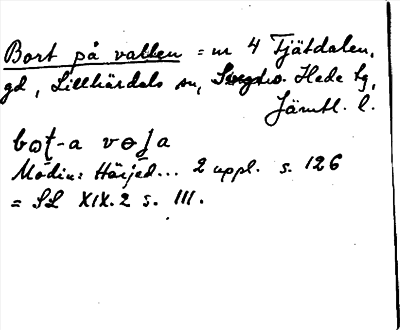 Bort på vallen = nr 4 Tjätdalen,
gd, Lillhärdals sn, Hede tg,
Jämtl. l.
boʈ-a voɭa
Modin: Härjed... 2 uppl. s. 126
= SL XIX. 2 s. 111.